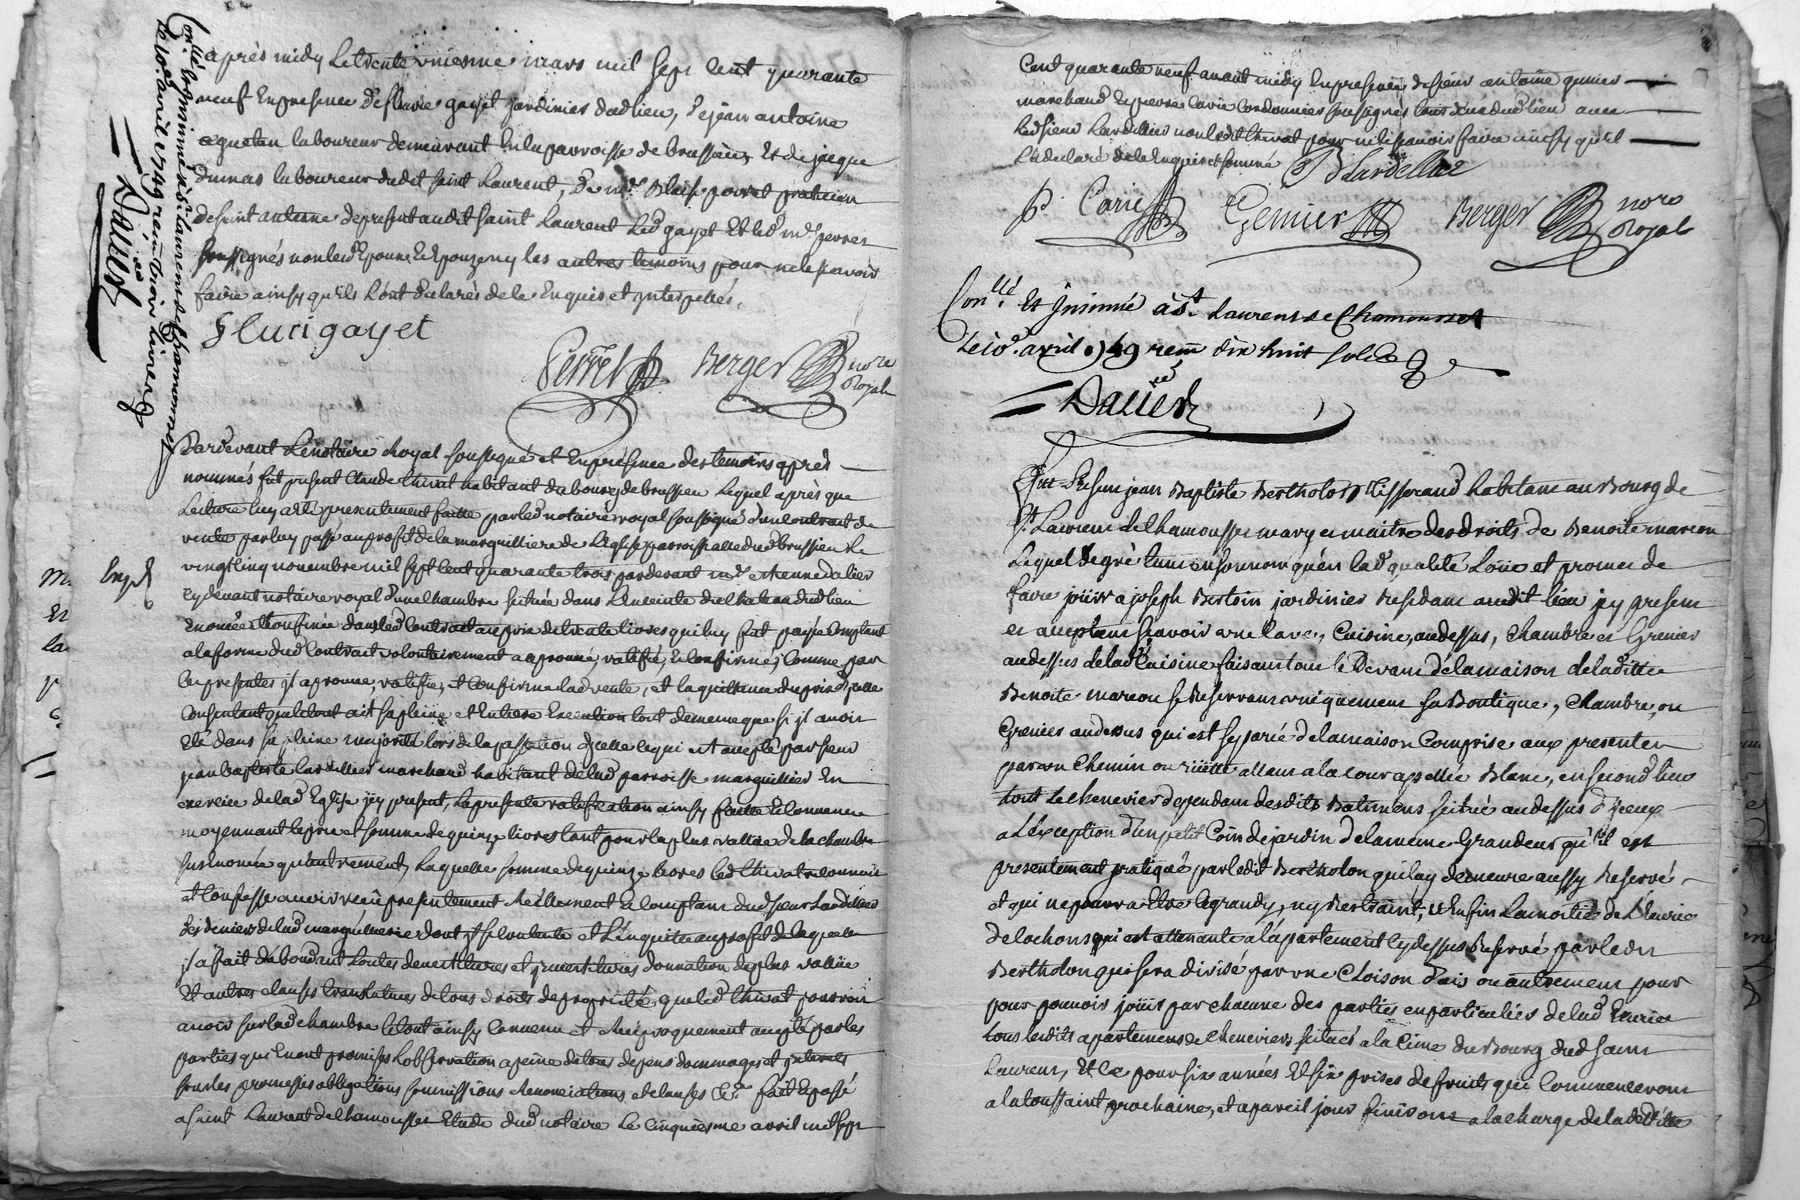 après midy le trente uniesme mars mil sept cent quarante
neuf en presence de fleurie gayet jardinier dud lieu, de jean antoine
laboureur demeurant en la parroisse de brussieu, et de jacque
dumas laboureur dudit saint Laurent, de me Blaise poirot praticien
de saint antoine de present audit saint Laurent Led gayet et led me perret
soussignés non led Epoux et Epouze ny les autres temoins pour ne le scavoir
faire ainsy qu'ils l'ont declarés de ce Enquis et interpellés.
fleuri gayet
Perret Berger nore Royal
Con.llé et insinué a st Laurent de chamousset
le 10e avril 1749 reçu trois livres
Dalier
Pardevant Le notaire Royal soussigné et En presence des temoins après
nommés fut present Claude thivat habitant du bourg de brussieu Lequel après que
Lecture luy a été presentement faitte par led notaire royal soussigné d'un contrat de
vente par luy passé au profit de la marguilliere de L'eglise parroissialle dud brussieu Le
vingt cinq novembre mil sept cent quarante trois pardevant me etienne dalier
cy devant notaire royal d'une chambre scituée dans L'enceinte du chateau dud lieu
Enoncée et Confinée dans led Contract au prix de trente livres qui luy fut payé Comptant
a la forme dud Contrat volontairement a aprouvé, ratifié, et Confirmé, Comme par
Ces presentes il aprouve, ratifie, et Confirme lad vente, et la quittance du prix d'icelle
Consentant que le tout ait sa pleine et Entiere Execution tout de meme que si il avoit
Eté dans sa pleine majorité lors de la passation d'icelle ce qui est accepté par sieur
jean baptiste Lardellier marchand habitant de lad parroisse marguillier En
exercice de lad Eglise icy present, La presente ratification ainsy faitte et Convenue
moyennant le prix et somme de quinze livres tant pour la plus vallue de la chambre
susEnoncée qu'autrement, Laquelle somme de quinze livres led thivat reconnoit
et Confesse avoir reçue presentement réellement et Comptant dud sieur Lardellier
des deniers de lad marguillerie dont il se Contente et L'en quitte au profit de laquelle
il a fait d'abondant toutes devestitures et investitures donnation de plus vallüe
Et autres clauses translatives de tous droits de proprieté que led thivat pouvoit
avoir sur lad chambre Le tout ainsy Convenu et reciproquement accepté par les
parties qui En ont promises L'observation a peine de tous depens dommages et interets
sous les promesses obligations soumissions renonciations et clauses &a. fait et passé
a saint Laurent de Chamousset Etude dud notaire Le cinquiesme avril mil sept
Exp.d
Cent quarante neuf avant midy En presence de sieur antoine genier
marchand et pierre Carie Cordonnier soussignés tous deux dud lieu avec
Led sieur Lardellier non ledit thivat pour ne le scavoir faire ainsy qu'il
L'a declaré de ce Enquis et sommé B Lardellier
P. Carie Genier Berger nore Royal
Con.llé Et insinué a st. Laurent de Chamousset
le 10e. avril 1749 reçu dix huit sols
Dalier
Fut Present jean Baptiste Bertholon Tisserand habitant au Bourg de
st. Laurent de Chamousset mary et maitre des droits de Benoite marcon
Lequel de gré tant en son nom qu'en lad qualité Loüe et promet de
faire joüir a joseph Bertoin jardinier Residant audit lieu icy present
et acceptant scavoir une Cave, Cuisine, au dessus, chambre et Grenier
au dessus de lad Cuisine faisant tout le Devant de la maison de laditte
Benoite marcon se Reservant uniquement sa Boutique, Chambre, ou
Grenier au dessus qui est separé de la maison Comprise aux presentes
par un Chemin ou rüette allant a la cour apellée Blanc, en second lieu
tout Le chenevier dependant desdits Batimens scitué au dessus d'iceux
a l'exception d'un petit Coin de jardin de la meme Grandeur qu'il est
presentement pratiqué par ledit Bertholon qui luy demeure aussy Reservé
et qui ne pourra Etre agrandy, ny Restraint, et Enfin La moitié de L'ecurie
de cochons qui est attenante a l'apartement cy dessus Reservé par led
Bertholon qui sera divisé par une Cloison d'ais ou autrement pour
pour pouvoir joüir par chacune des parties en particulier de lad Ecurie
tous lesdits apartements et Chenevier scitués a la Cime du Bourg dud saint
Laurent, Et Ce pour six années Et six prises de fruits qui Commenceront
a la toussaint prochaine, et a pareil jour finiront a la charge de la ditte